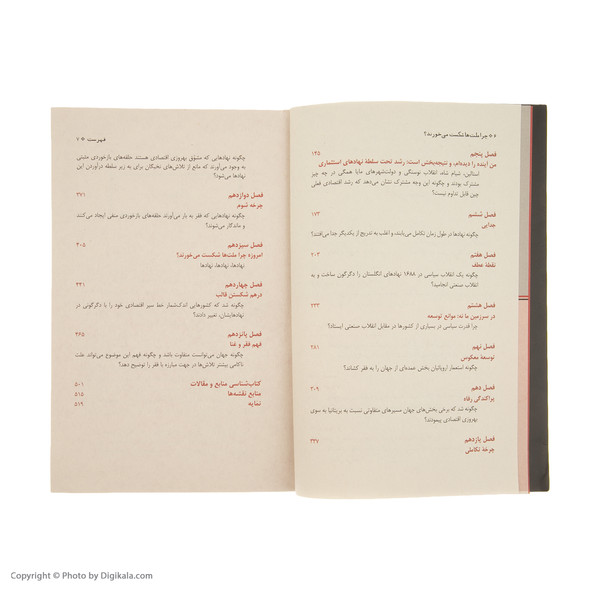 ۶ * چرا ملت‌ها شکست می‌خورند؟
فصل پنجم ۱۴۵
من آینده را دیده‌ام، و نتیجه‌بخش است: رشد تحت سلطهٔ نهادهای استثماری
استالین، شیام شاه، انقلاب نوسنگی و دولت‌شهرهای مایا همگی در چه چیز
مشترک بودند و چگونه این وجه مشترک نشان می‌دهد که رشد اقتصادی فعلی
چین قابل تداوم نیست؟
فصل ششم ۱۷۳
جدایی
چگونه نهادها در طول زمان تکامل می‌یابند، و اغلب به تدریج از یکدیگر جدا می‌افتند؟
فصل هفتم ۲۰۳
نقطهٔ عطف
چگونه یک انقلاب سیاسی در ۱۶۸۸ نهادهای انگلستان را دگرگون ساخت و به
انقلاب صنعتی انجامید؟
فصل هشتم ۲۳۳
در سرزمین ما نه: موانع توسعه
چرا قدرت سیاسی در بسیاری از کشورها در مقابل انقلاب صنعتی ایستاد؟
فصل نهم ۲۸۱
توسعهٔ معکوس
چگونه استعمار اروپائیان بخش عمده‌ای از جهان را به فقر کشاند؟
فصل دهم ۳۰۹
پراکندگی رفاه
چگونه شد که برخی بخش‌های جهان مسیرهای متفاوتی نسبت به بریتانیا به سوی
بهروزی اقتصادی پیمودند؟
فصل یازدهم ۳۳۷
چرخهٔ تکاملی
فهرست * ۷
چگونه نهادهایی که مشوق بهروزی اقتصادی هستند حلقه‌های بازخوردی مثبتی
به وجود می‌آورند که مانع از تلاش‌های نخبگان برای به زیر سلطه درآوردن این
نهادها می‌شود؟
فصل دوازدهم ۳۷۱
چرخه شوم
چگونه نهادهایی که فقر به بار می‌آورند حلقه‌های بازخوردی منفی ایجاد می‌کنند
و ماندگار می‌شوند؟
فصل سیزدهم ۴۰۵
امروزه چرا ملت‌ها شکست می‌خورند؟
نهادها، نهادها، نهادها
فصل چهاردهم ۴۴۱
درهم شکستن قالب
چگونه شد که کشورهایی اندک‌شمار خط سیر اقتصادی خود را با دگرگونی در
نهادهایشان، تغییر دادند؟
فصل پانزدهم ۴۶۵
فهم فقر و غنا
چگونه جهان می‌توانست متفاوت باشد و چگونه فهم این موضوع می‌تواند علت
ناکامی بیشتر تلاش‌ها در جهت مبارزه با فقر را توضیح دهد؟
کتاب‌شناسی منابع و مقالات ۵۰۱
منابع نقشه‌ها ۵۱۵
نمایه ۵۱۹
Copyright © Photo by Digikala.com